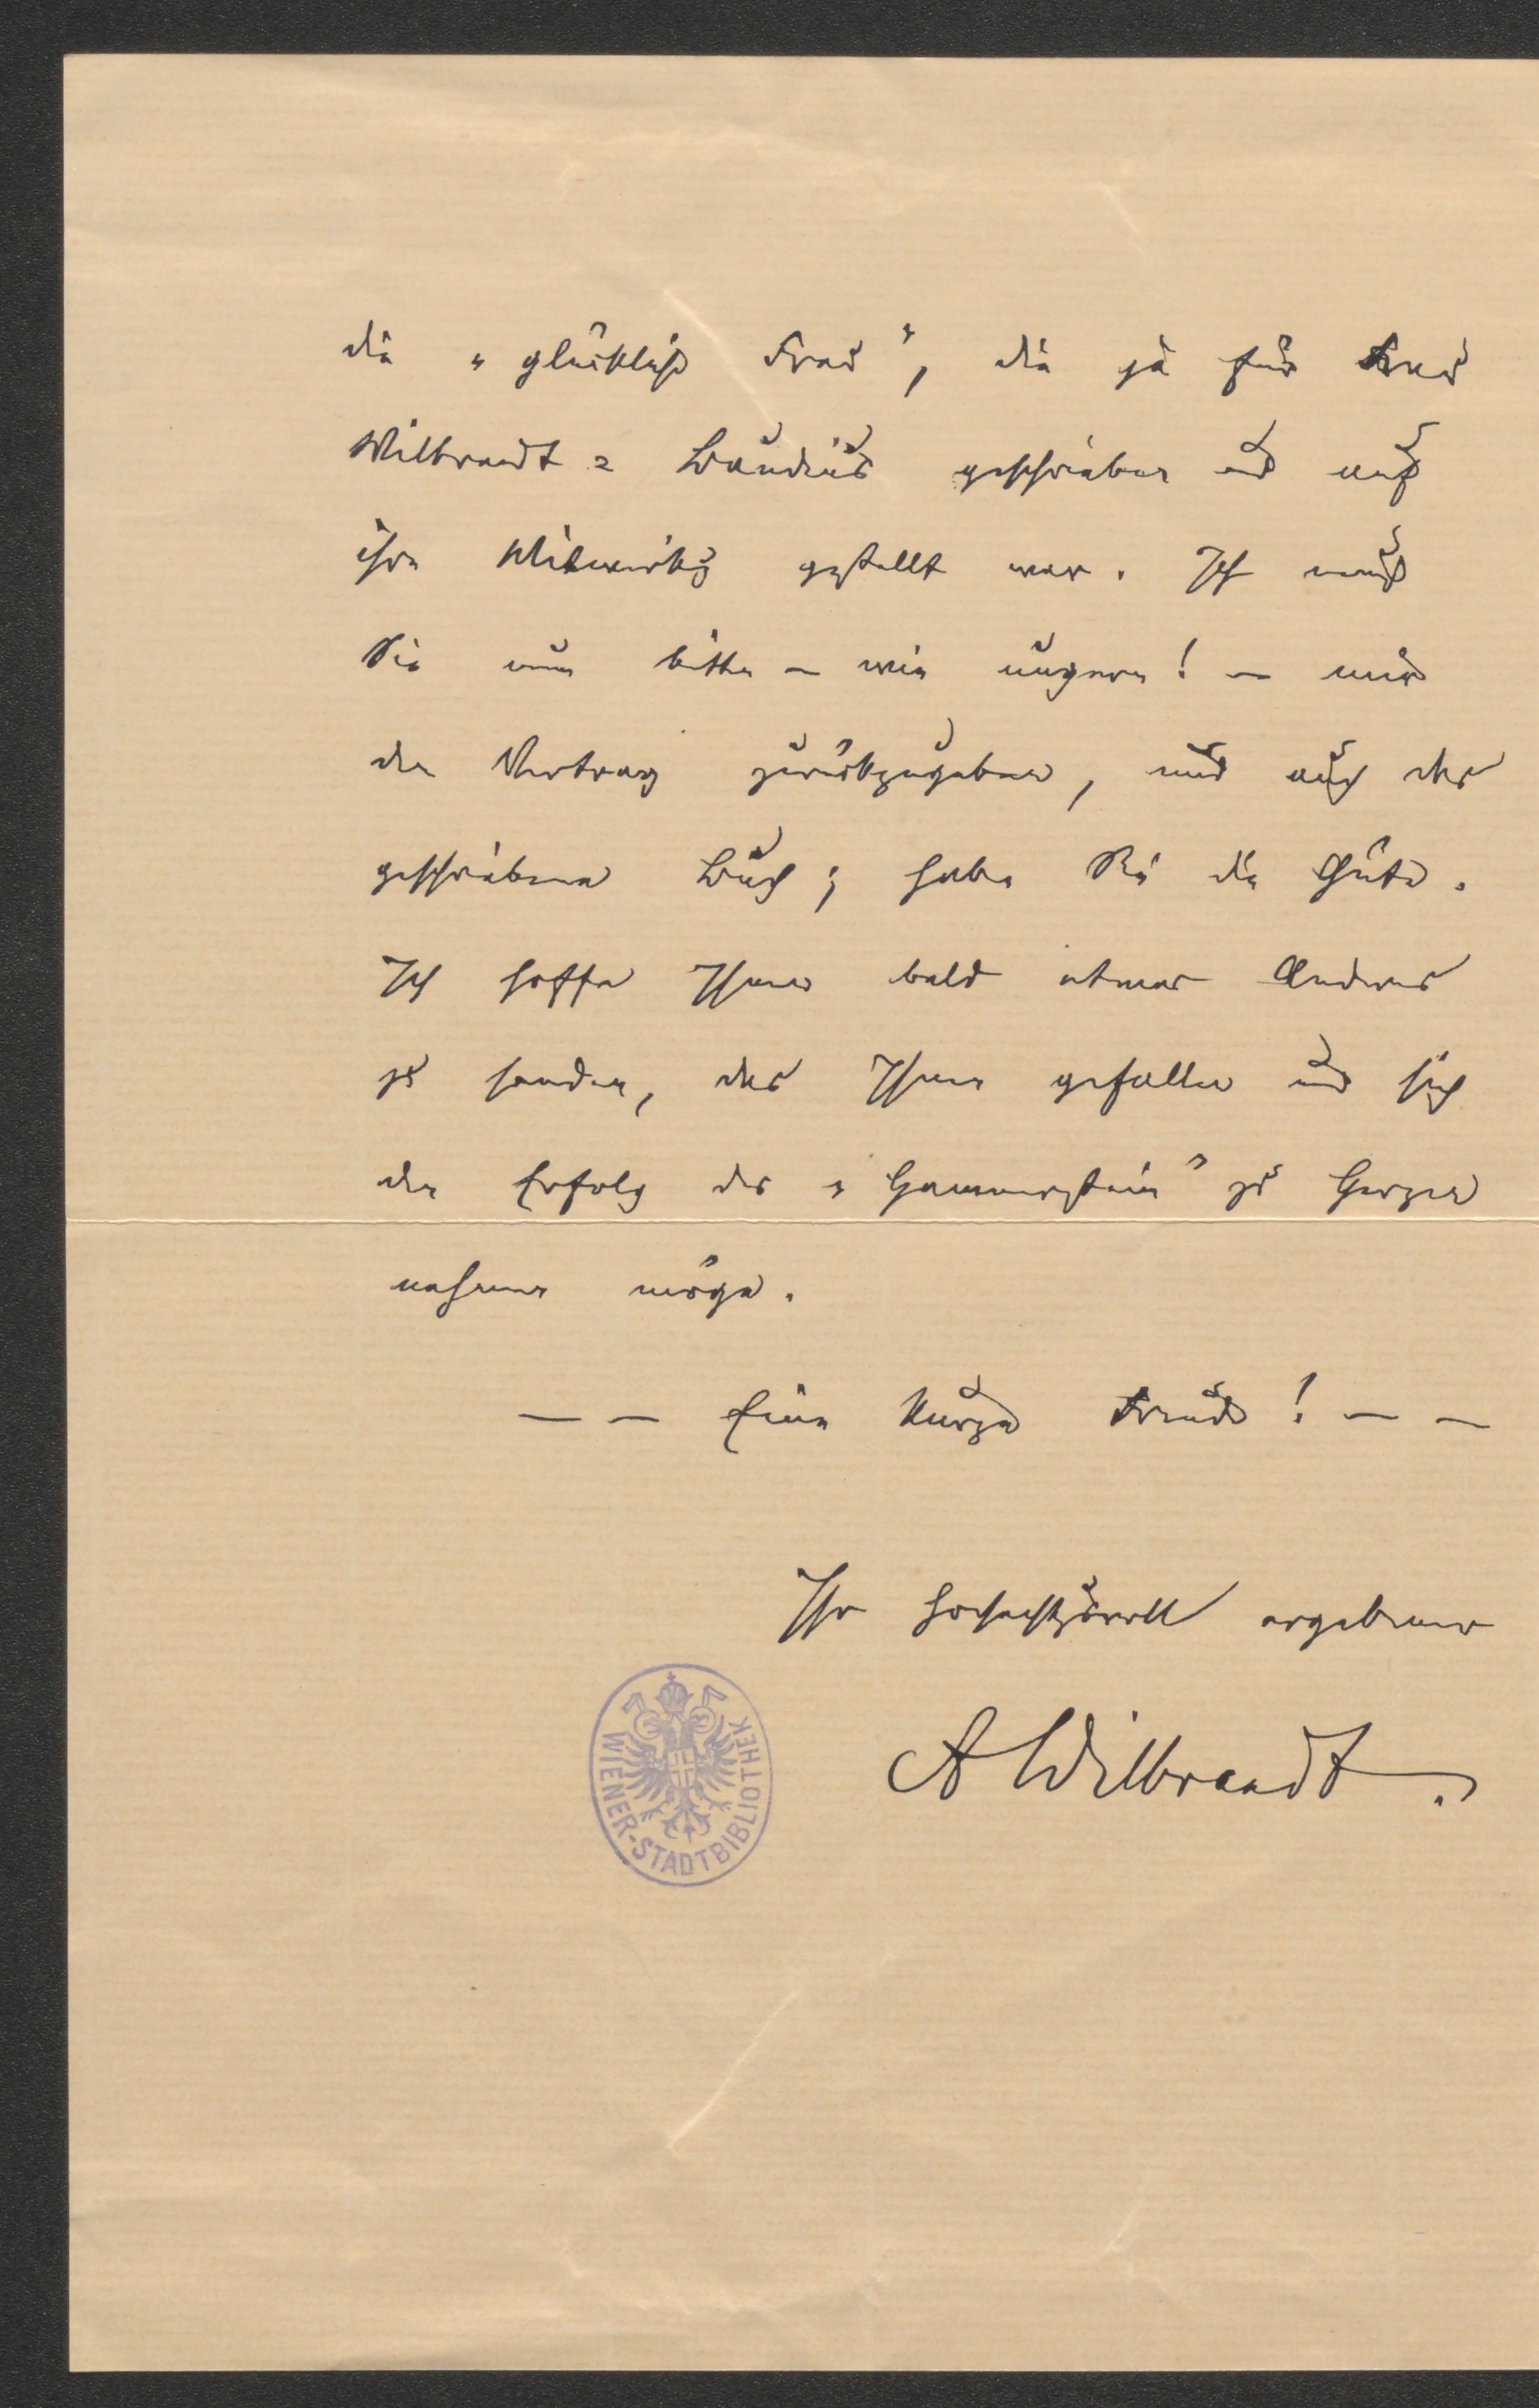 die „glückliche Frau", die ja für Frau
Wilbrandt-Baudius geschrieben und auf
ihre Mitwirkung gestellt war. Ich muß
Sie nun bitten – wie ungern! – mir
den Vertrag zurückzugeben, und auch das
geschriebene Buch; haben Sie die Güte.
Ich hoffe Ihnen bald etwas Anderes
zu senden, das Ihnen gefallen und sich
den Erfolg des „Hammerstein" zu Herzen
nehmen möge.
– – Eine kurze Freude! – –
Ihr hochachtungsvoll ergebener
AWilbrandt.
WIENER-STADTBIBLIOTHEK